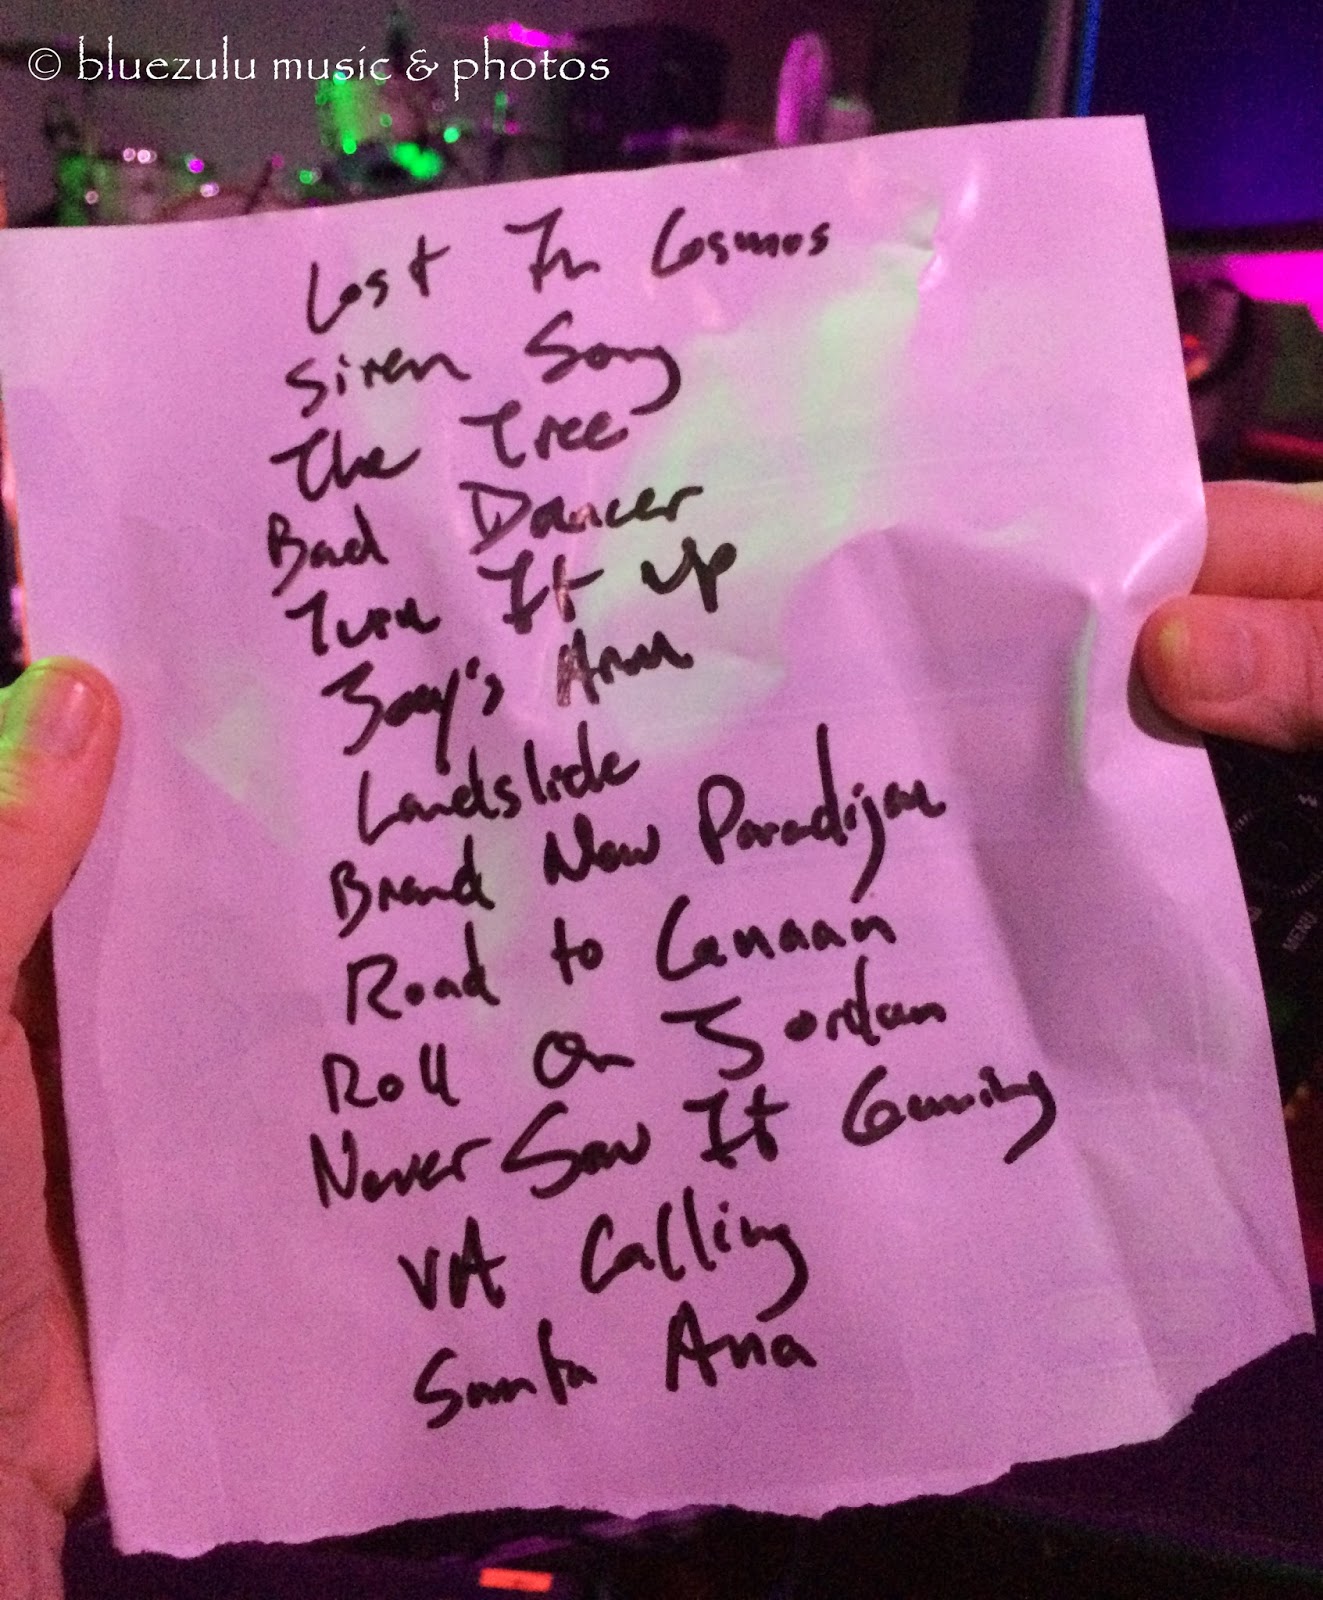 © bluezulu music & photos
Lost In Cosmos
Siren Song
The Tree
Bad Dancer
Turn It Up
Joey's Arm
Landslide
Brand New Paradijm
Road to Canaan
Roll On Jordan
Never Saw It Coming
VA Calling
Santa Ana
MENU